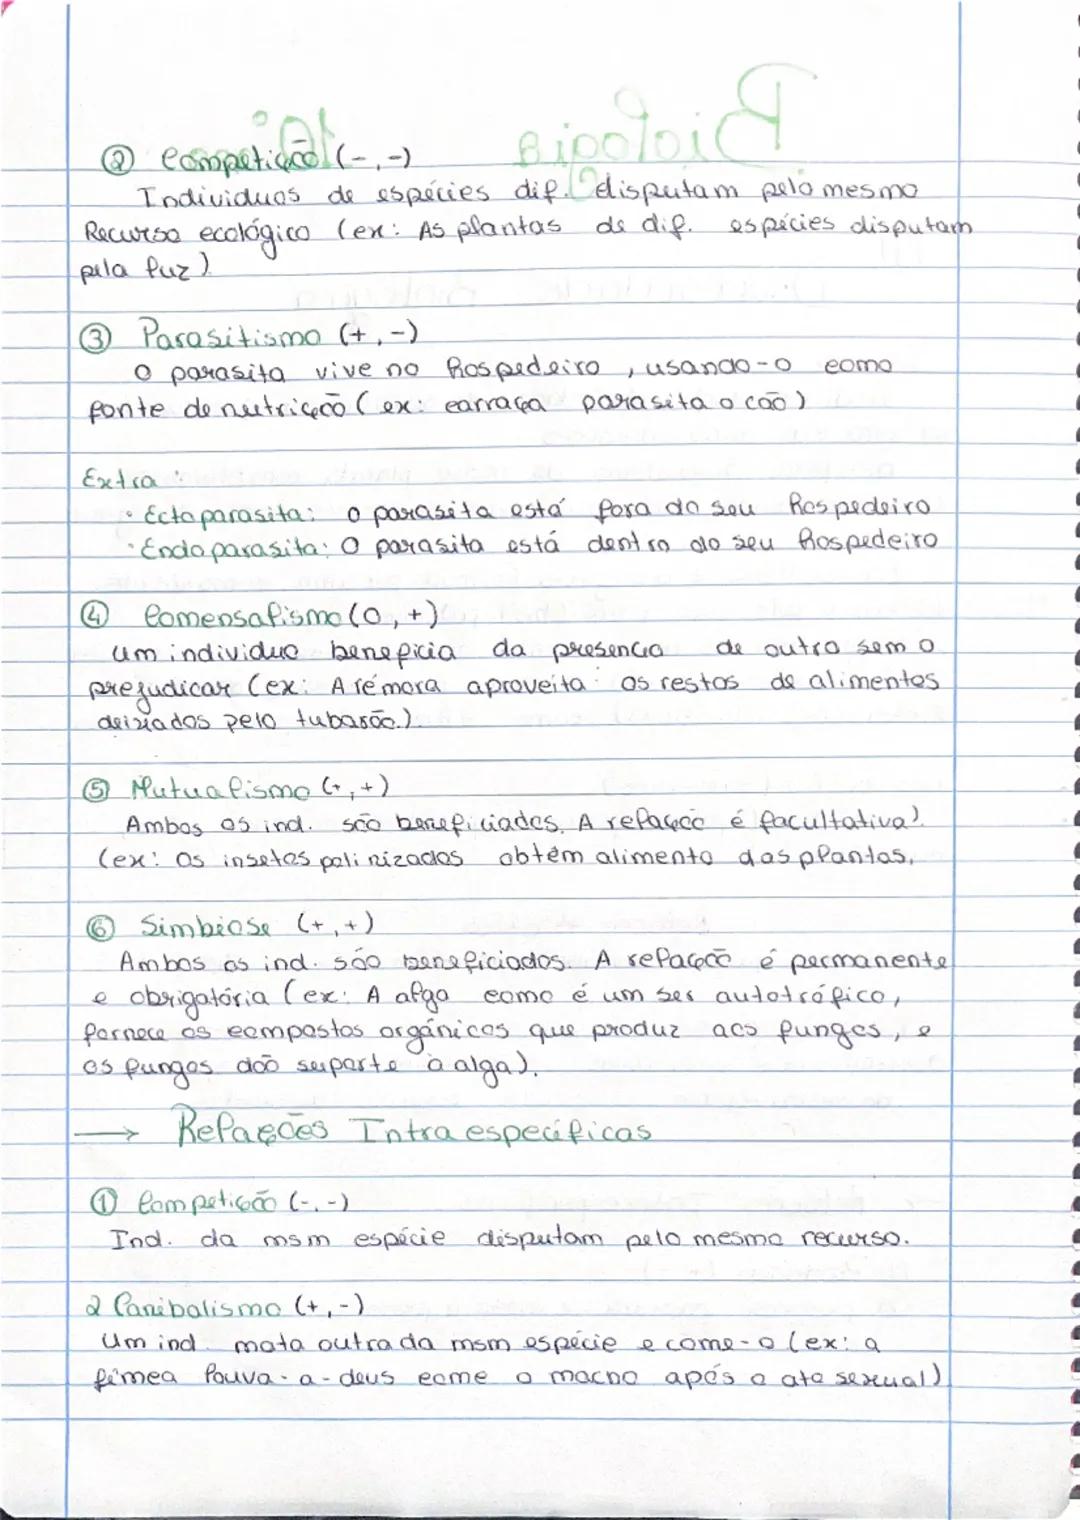 ② Competição (-,-)
Individuos de espécies dif. disputam pelo mesmo
Recurso ecológico (ex: As plantas de dif. espécies disputam
pela luz)
③ Parasitismo (+,-)
O parasita vive no hospedeiro, usando-o como
fonte de nutrição (ex: carraça parasita o cão)
Extra:
• Ectoparasita: o parasita está fora do seu hospedeiro
• Endoparasita: O parasita está dentro do seu hospedeiro
④ Comensalismo (0,+)
Um individuo beneficia da presença de outro sem o
prejudicar (ex: A rémora aproveita os restos de alimentos
deixados pelo tubarão.)
⑤ Mutualismo (+,+)
Ambos os ind. são beneficiados. A relação é facultativa).
(ex: Os insetos polinizados obtêm alimento das plantas.
⑥ Simbiose (+,+)
Ambos os ind. são beneficiados. A relação é permanente
e obrigatória (ex: A alga como é um ser autotrófico,
fornece os compostos orgânicos que produz aos fungos, e
os fungos dão suporte à alga).
→ Relações Intraespecíficas
① Competição (-,-)
Ind. da msm espécie disputam pelo mesmo recurso.
2 Canibalismo (+,-)
Um ind. mata outro da msm espécie e come-o (ex: a
fêmea louva-a-deus come o macho após o ato sexual)
Biologia 10º